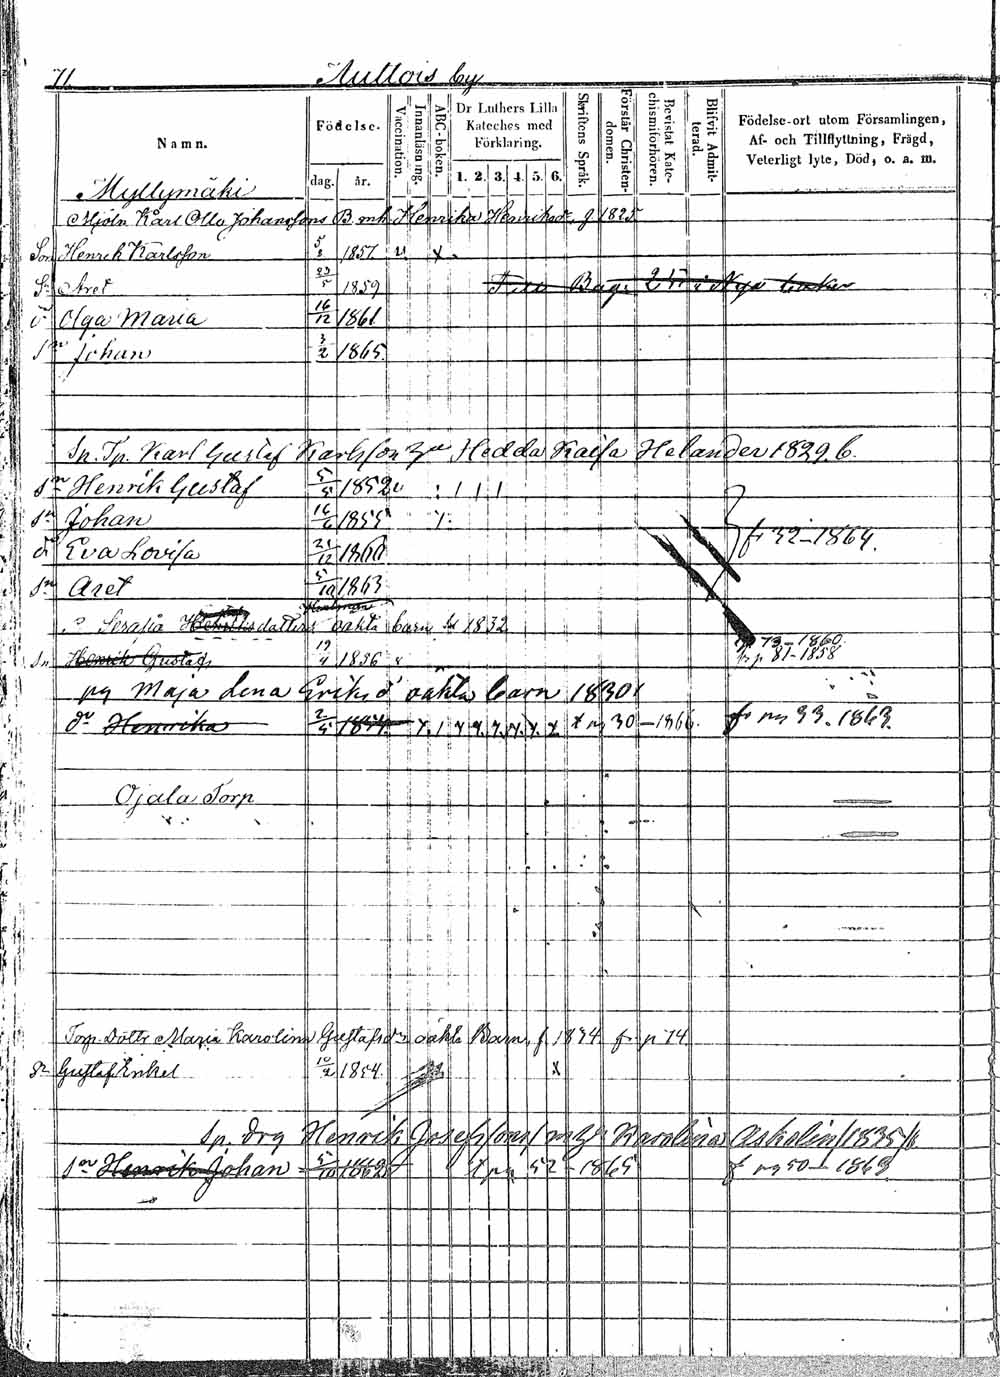 71. Auttois by
Namn.
Födelse.
dag. år.
Vaccination.
Innanläsning.
ABC-boken.
Dr Luthers Lilla Kateches med Förklaring.
1. 2. 3. 4. 5. 6.
Skriftens Språk.
Förstår Christendomen.
Bevistat Katechismiförhören.
Blifvit Admitterad.
Födelse-ort utom Församlingen, Af- och Tillflyttning, Frägd, Veterligt lyte, Död, o. a. m.
Myllymäki
Mjöln Karl Otto Johanssons B. m h Henrika Henriksdr f 1825
Son Henrik Karlsson 1857 v x
Sn Axet 23/5 1859
dr Olga Maria 16/12 1861
Sn Johan 3/2 1865
Sn. Tp. Karl Gustaf Karlsson Hedda Kaisa Helander 1829 b.
Sn Henrik Gustaf 5/5 1852 v
Sn Johan 16/6 1855
dr Eva Lovisa 21/12 1860 fr 32-1864.
Sn Axet 5/10 1863
Serafia oäkta barn 1832
73-1860.
Sn Henrik Gustaf 19/4 1856 p 81-1858
pg Maja Lena Eriksdr oäkta barn 1830
dr Henrika 30-1866 fr pg 33. 1863.
Ojala Torp
Torp. Dottr Maria Karolina Gustafsdr oäkta Barn f 1834 fr p 74
Sn Gustaf Erikel 10/2 1854. x
Sp. drg Henrik Josefssons m Karolina Askolin 1835 b
Sn Henrik Johan 5/10 1862 pg 52-1865 f pg 50-1863